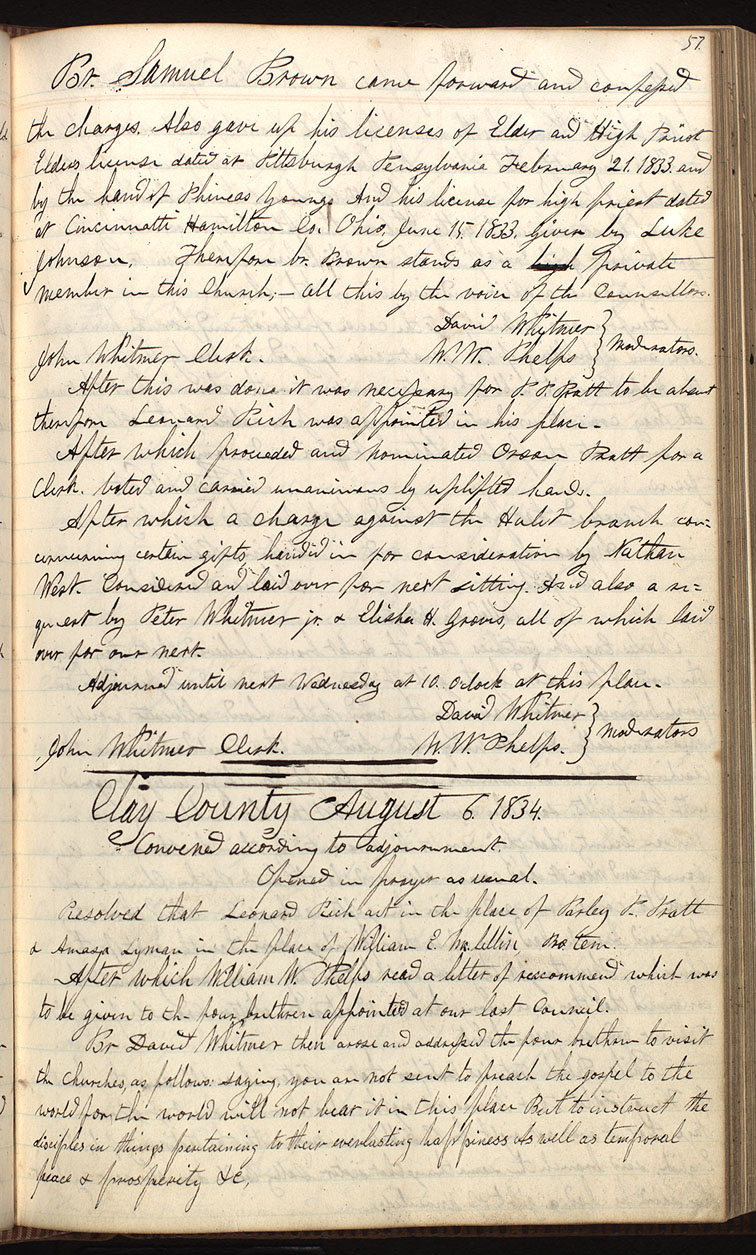 57.
Br. Samuel Brown came forward and confessed
the charges. Also gave up his licenses of Elder and High Priest
Elders license dated at Pittsburgh Pensylvania February 21. 1833. and
by the hand of Phineas Young. And his license for high priest dated
at Cincinnatti Hamilton Co. Ohio, June 15. 1833. given by Luke
Johnson. Therefore br. Brown stands as a high private
member in this Church;— all this by the voice of the Counsellors.
David Whitmer
John Whitmer Clerk. W. W. Phelps } Moderators.
After this was done it was necessary for P. P. Pratt to be absent
therefore Leonard Rich was appointed in his place.
After which proceeded and nominated Orson Pratt for a
Clerk. Voted and carried unanimous by uplifted hands.
After which a charge against the Hulet branch con=
cerning certain gifts, handed in for consideration by Nathan
West. Considered and laid over for next sitting. And also a re=
quest by Peter Whitmer jr. & Elisha H. Groves, all of which laid
over for our next.
Adjourned until next Wednesday at 10. Oclock at this place.
David Whitmer
John Whitmer Clerk. W W Phelps. } Moderators
Clay County August 6. 1834.
Convened according to adjournment.
Opened in prayer as usual.
Resolved that Leonard Rich act in the place of Parley P. Pratt
& Amasa Lyman in the place of William E. Mc.lellin Pro. tem.
After which William W. Phelps read a letter of reccommend which was
to be given to the four brethren appointed at our last Council.
Br David Whitmer then arose and addressed the four brethren to visit
the Churches, as follows: saying, you are not sent to preach the gospel to the
world for the world will not bear it in this place But to instruct the
disciples in things pertaining to their everlasting happiness as well as temporal
peace & prosperity &c,